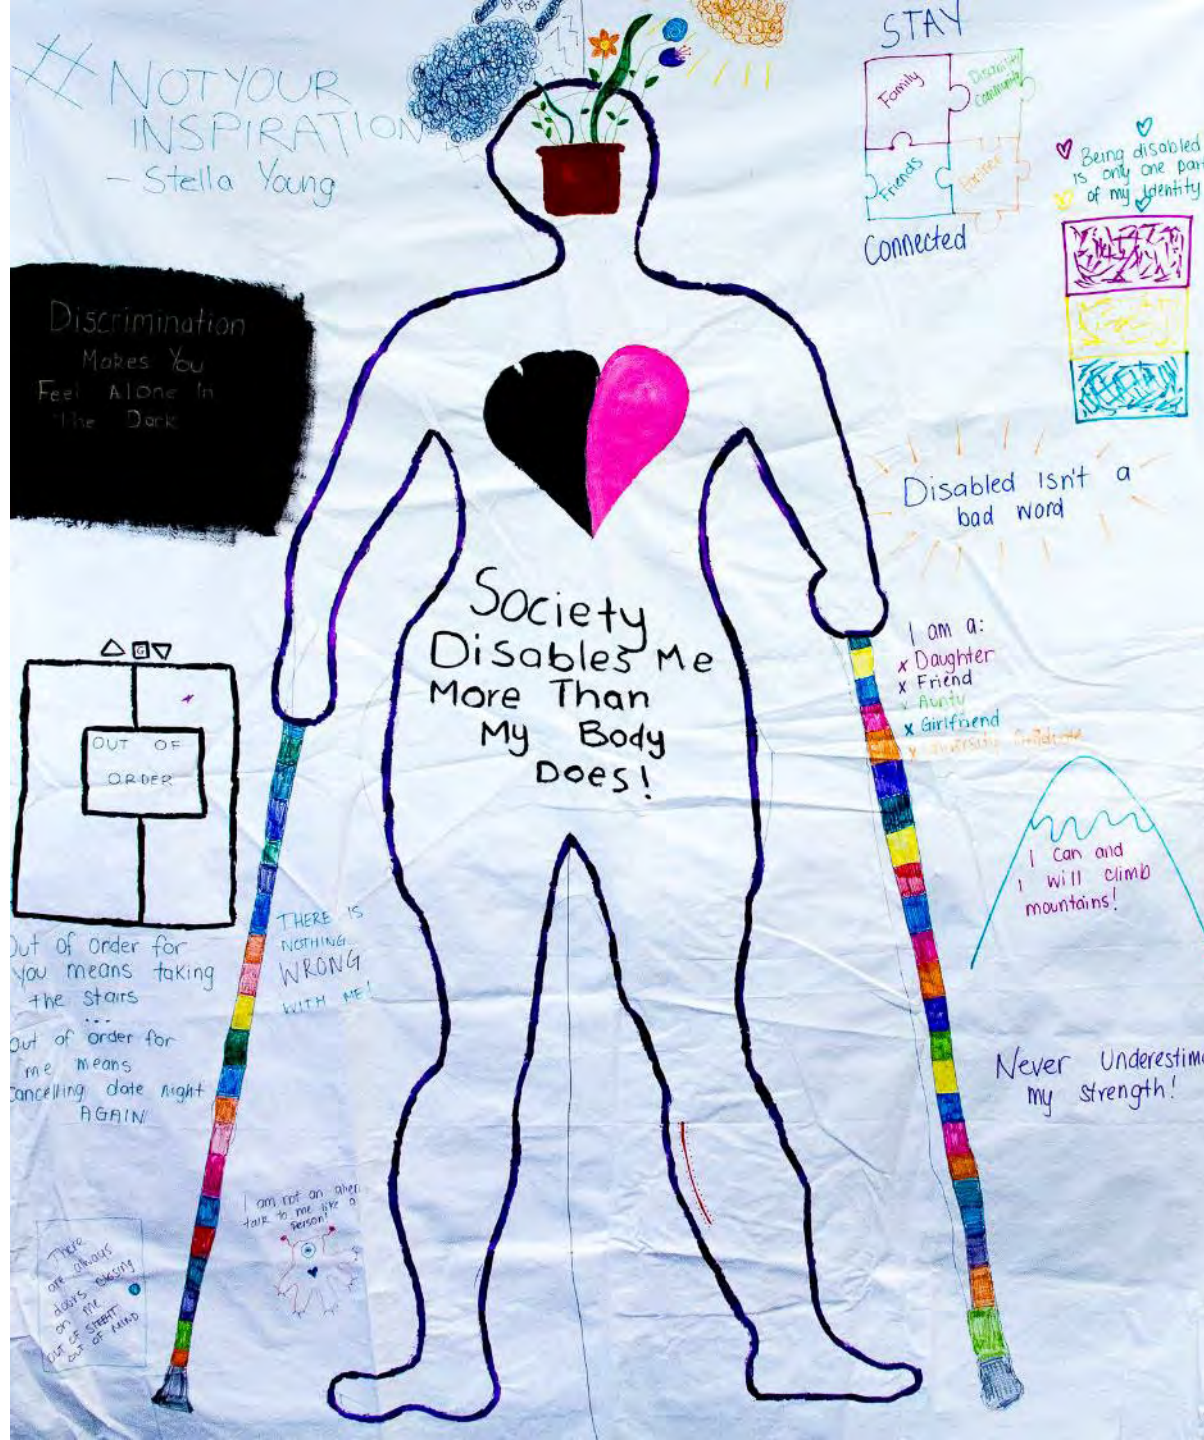 # NOT YOUR
INSPIRATION
- Stella Young
STAY
Family
Disability
Community
Friends
Connected
Being disabled
is only one par
of my identity
Discrimination
Makes You
Feel Alone In
The Dark
Disabled Isn't a
bad word
Society
Disables Me
More Than
My Body
Does!
I am a:
x Daughter
x Friend
x Aunty
x Girlfriend
x University Graduate
G
OUT OF
ORDER
Out of order for
you means taking
the stairs
...
Out of order for
me means
Cancelling date night
AGAIN
THERE IS
NOTHING
WRONG
WITH ME!
I can and
I will climb
mountains!
Never Underestima
my strength!
I am not an alien
talk to me like a
person!
There
are always
doors closing
on me
OUT OF SIGHT
OUT OF MIND